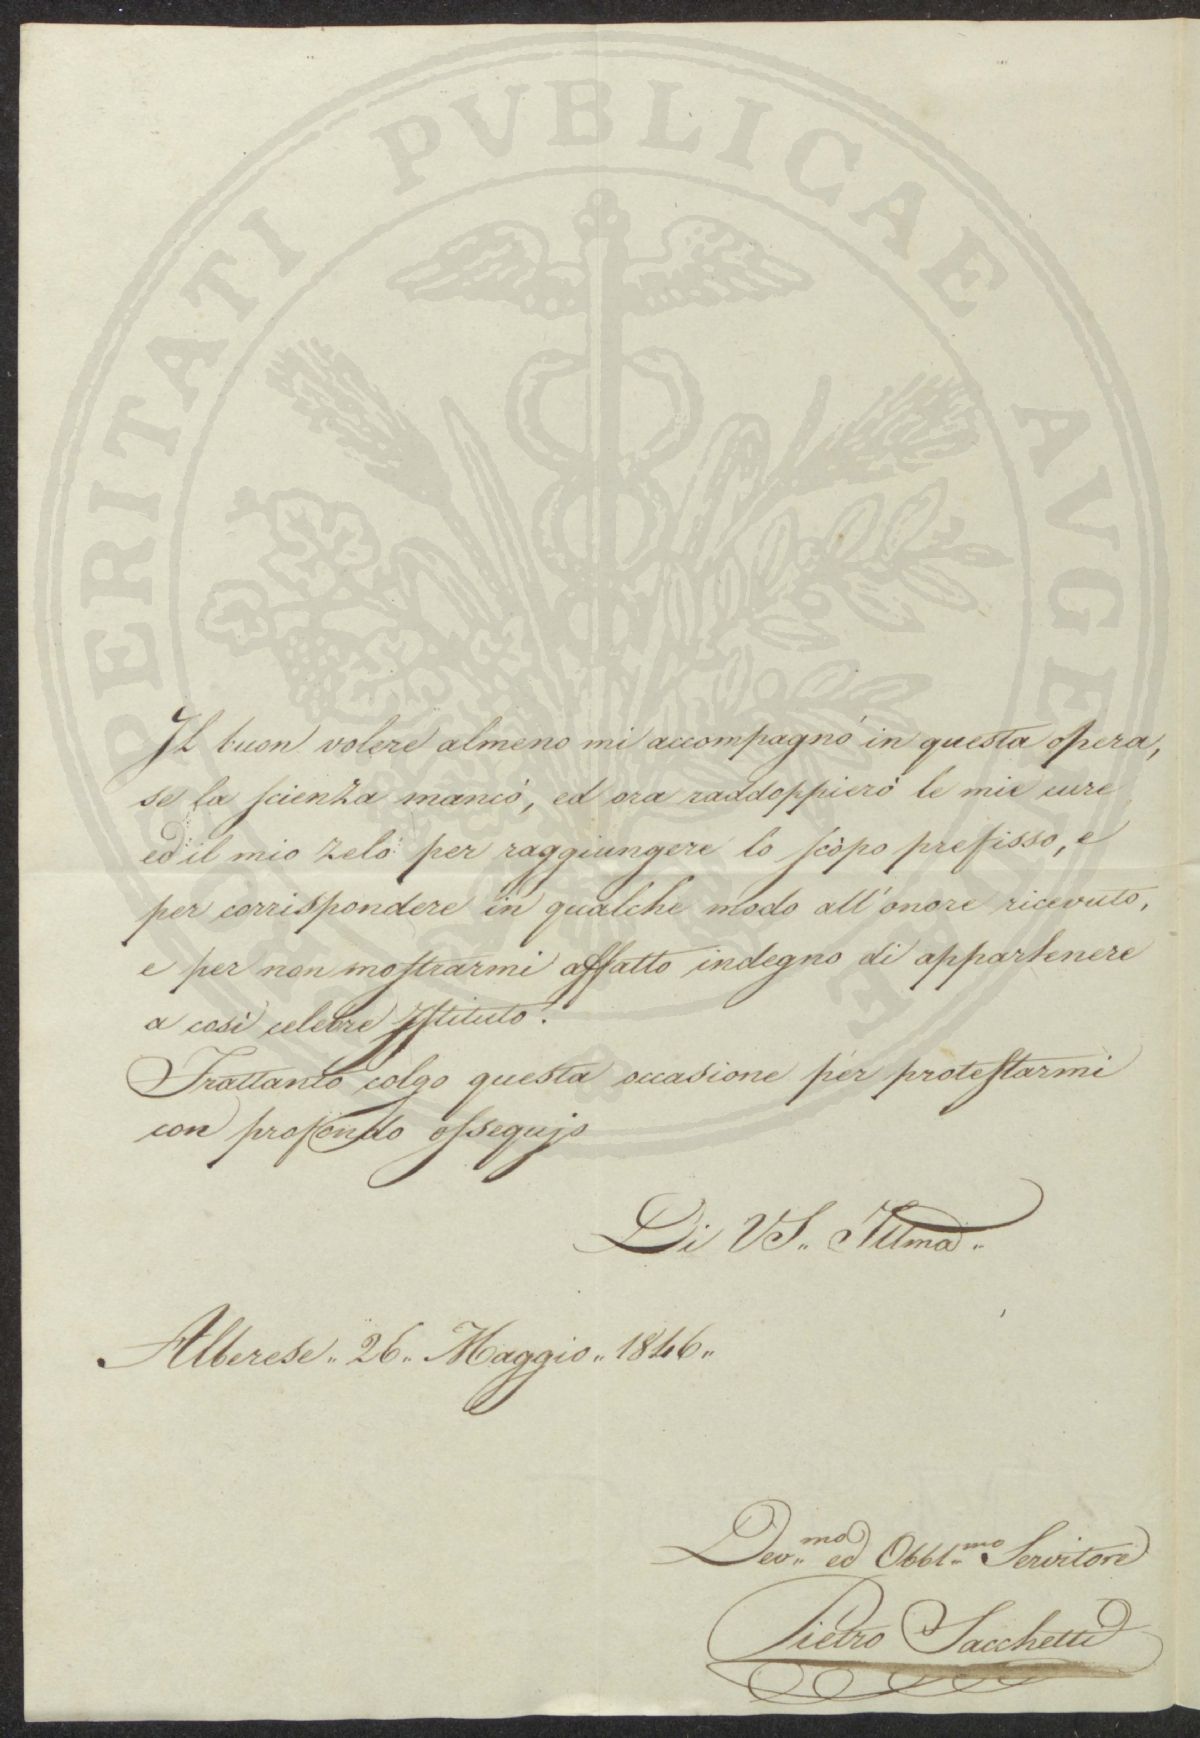 PROSPERITATI PVBLICAE AVGENDAE
Il buon volere almeno mi accompagnò in questa opera,
se la scienza mancò, ed ora raddoppierò le mie cure
ed il mio zelo per raggiungere lo scopo prefisso, e
per corrispondere in qualche modo all'onore ricevuto,
e per non mostrarmi affatto indegno di appartenere
a così celebre Istituto.
Frattanto colgo questa occasione per protestarmi
con profondo ossequjo
Di VS.. Illma..
Alberese.. 26.. Maggio.. 1846..
Dev..mo ed Obbl..mo Servitore
Pietro Sacchetti